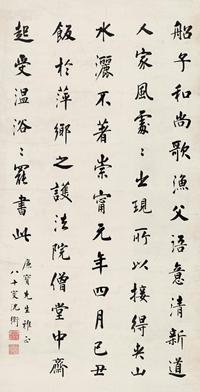 船子和尚歌漁父語意清新道
人家風處〻出現所以接得夾山
水灑不著崇甯元年四月己丑
飯於萍鄉之護法院僧堂中齋
起受溫浴〻罷書此
廉賢先生雅正
八十叟沈衛